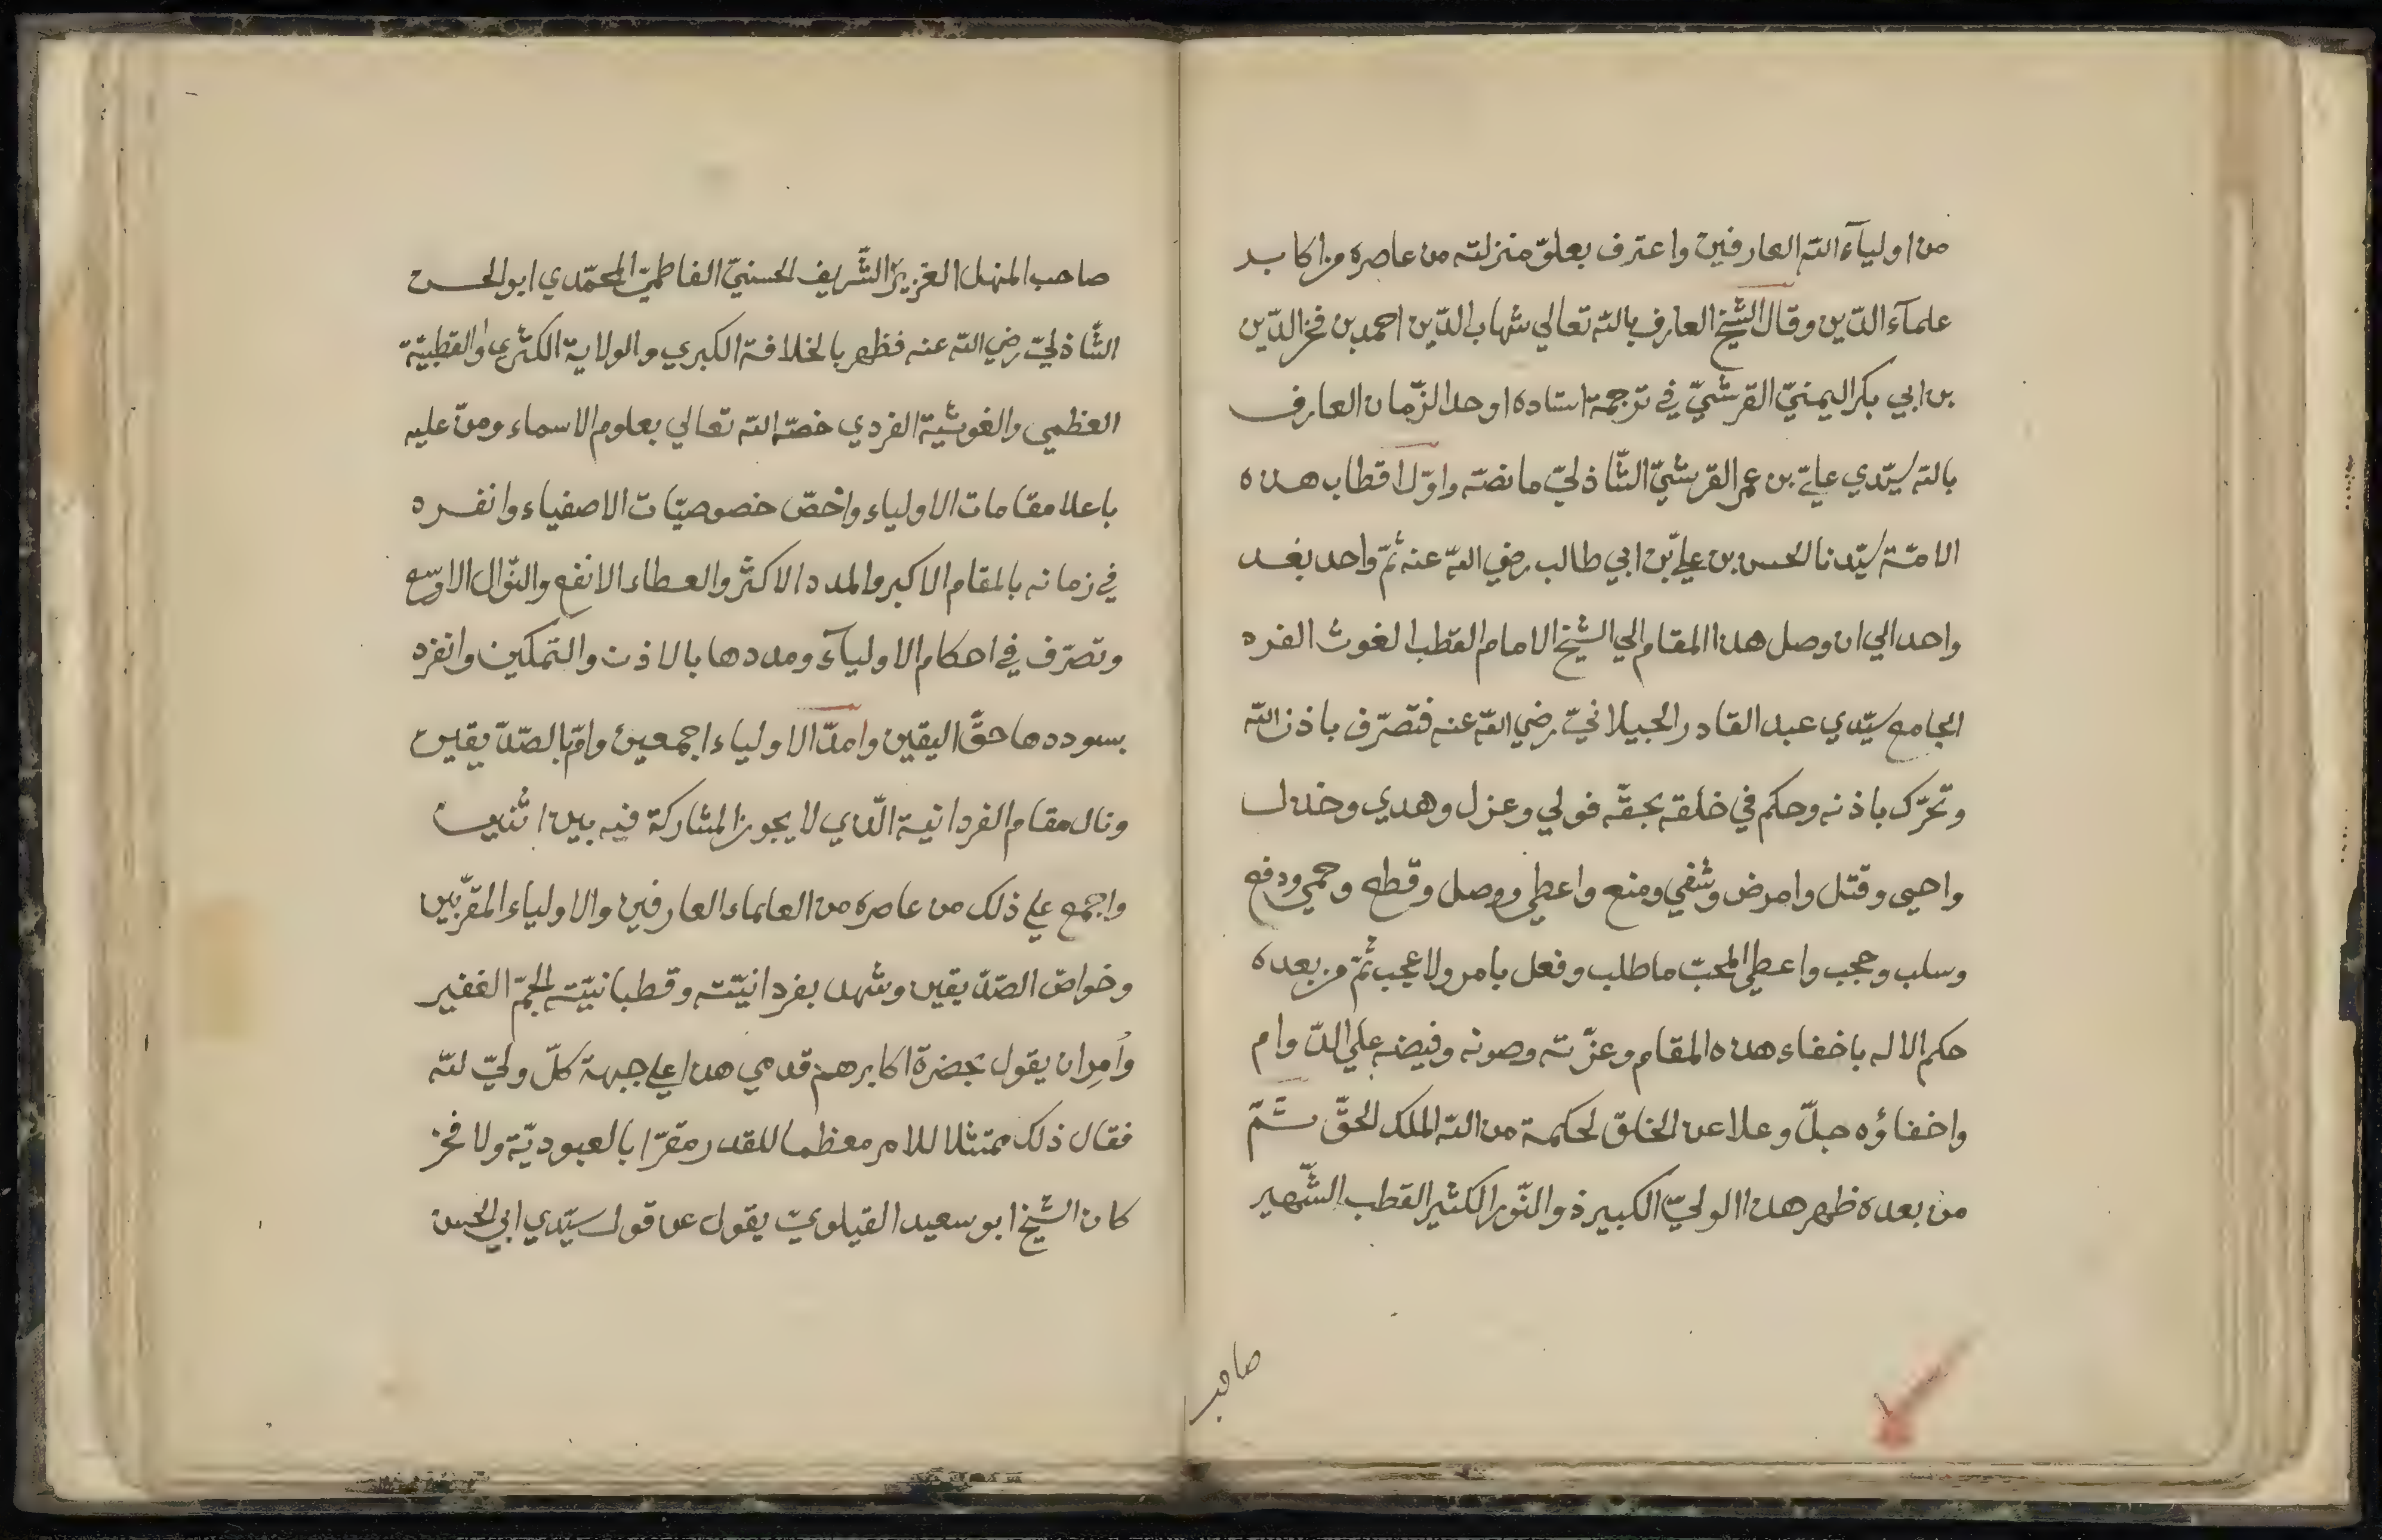 من اوليآء الله العارفين واعترف بعلوّ منزلته من عاصره من اكابر
علمآء الدّين وقال الشّيخ العارف بالله تعالي شهاب الدّين احمد بن فخر الدّين
بن ابي بكر اليمنيّ القرشيّ في ترجمة استاده اوحد الزّمان العارف
بالله سيّدي عليّ بن عمر القرشيّ الشّاذليّ ما نصّه واوّل اقطاب هذه
الامّة سيّدنا الحسن بن عليّ بن ابي طالب رضي الله عنه ثمّ واحد بعد
واحد الي ان وصل هذا المقام الي الشيخ الامام القطب الغوث الفرد
الجامع سيّدي عبد القادر الجيلانيّ رضي الله عنه فتصرّف باذن الله
وتحرّك باذنه وحكم في خلقه بحقّه فولي وعزل وهدي وخذل
واحيى وقتل وامرض وشفي ومنع واعطي ووصل وقطع وحمي ودفع
وسلب وحجب واعطي المحبّ ما طلب وفعل بامر ولا عجب ثمّ من بعده
حكم الاله باخفاء هذه المقام وعزّته وصونه وفيضه علي الدّوام
واخفاؤه جلّ وعلا عن الخلق لحكمة من الله الملك الحقّ ثمّ
من بعده ظهر هذا الوليّ الكبير ذو النّور الكثير القطب الشّهير
صاحب
صاحب المنهل العزيز الشّريف الحسنيّ الفاطميّ المحمّدي ابو الحسن
الشّاذليّ رضي الله عنه فظهر بالخلافة الكبري والولاية الكثري والقطبيّة
العظمي والغوثيّة الفردي خصّه الله تعالي بعلوم الاسماء ومنّ عليه
باعلا مقامات الاولياء واخصّ خصوصيّات الاصفياء وانفرد
في زمانه بالمقام الاكبر والمدد الاكثر والعطاء الانفع والنّوال الاوسع
وتصرّف في احكام الاوليآء ومددها بالاذن والتمكين وانفرد
بسوددها حقّ اليقين وامدّ الاولياء اجمعين وامّ بالصّدّيقين
ونال مقام الفردانية الّذي لا يجوز المشاركة فيه بين اثنين
واجمع علي ذلك من عاصره من العلماء العارفين والاولياء المقرّبين
وخواصّ الصّدّيقين وشهد بفردانيّته وقطبانيّته الجمّ الغفير
وأُمِر ان يقول بحضرة اكابرهم قدمي هذا علي جبهة كلّ وليّ لله
فقال ذلك ممتثلا للامر معظما للقدر مقرّا بالعبوديّة ولا فخر
كان الشيخ ابو سعيد القيلويّ يقول عن قول سيّدي ابي الحسن